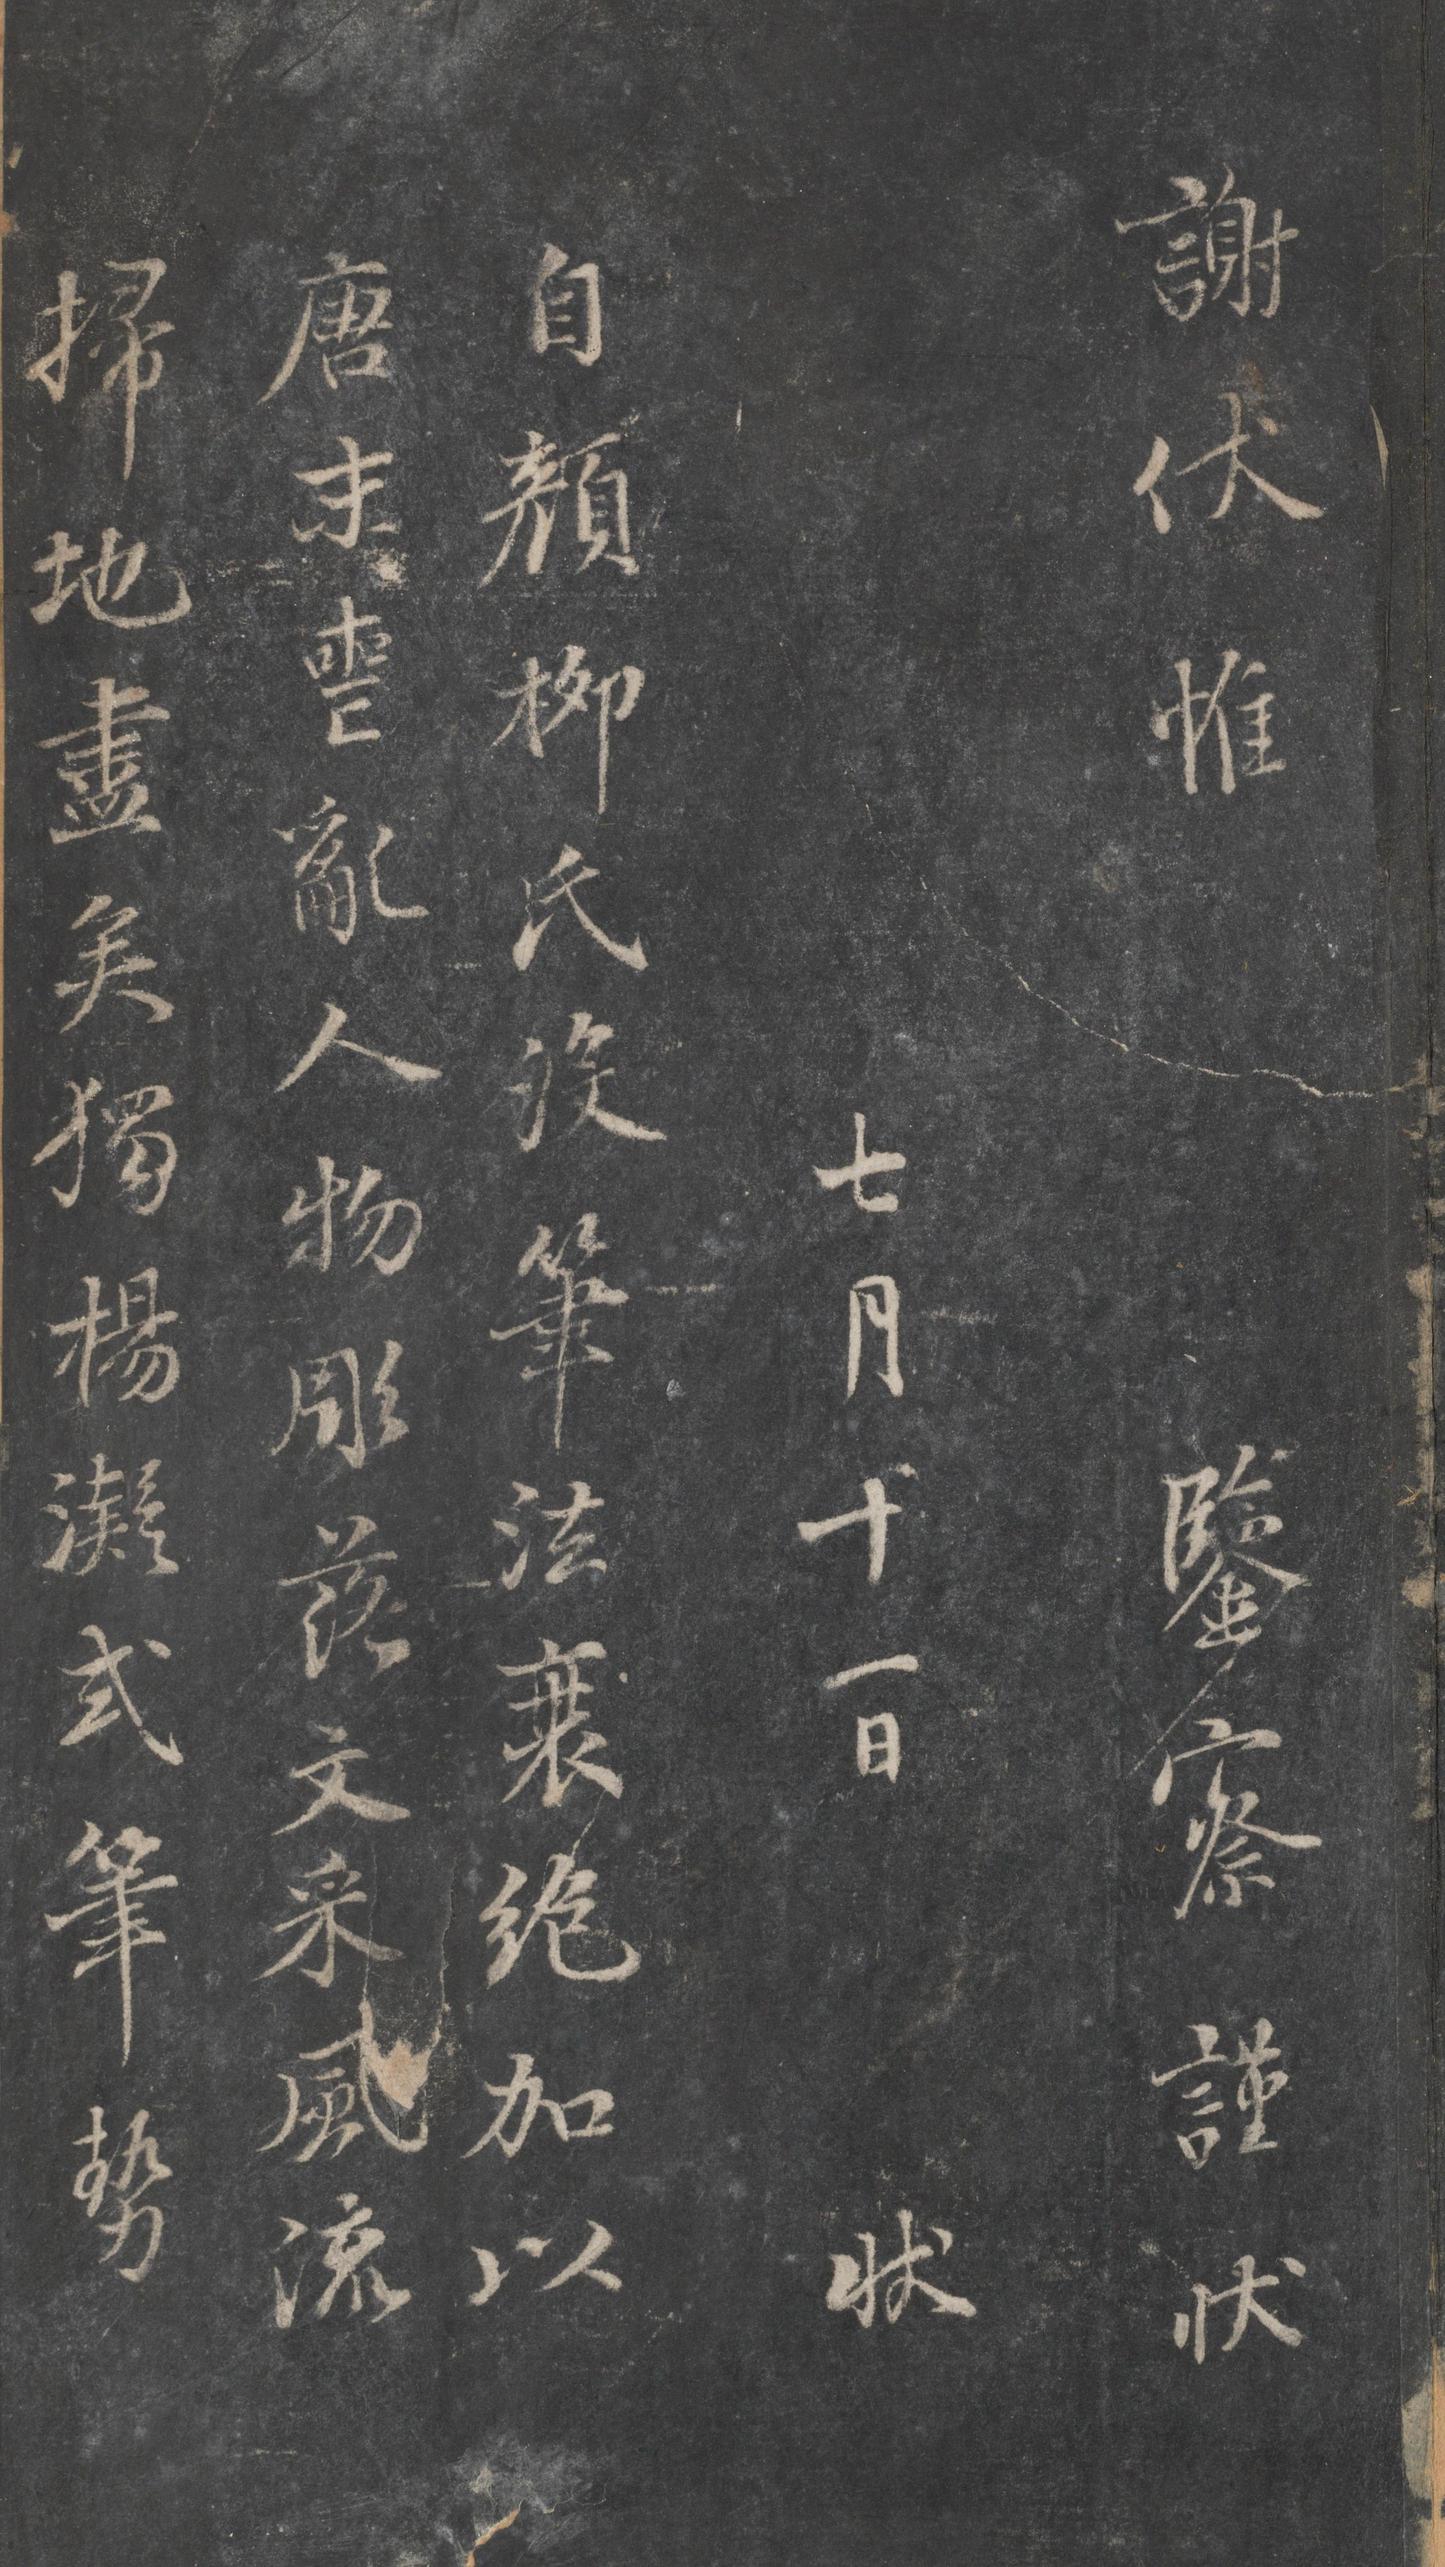 謝伏惟 鑒察謹狀
七月十一日 狀
自顏柳氏没筆法衰絕加以
唐末喪亂人物彫落文采風流
掃地盡矣獨楊凝式筆勢